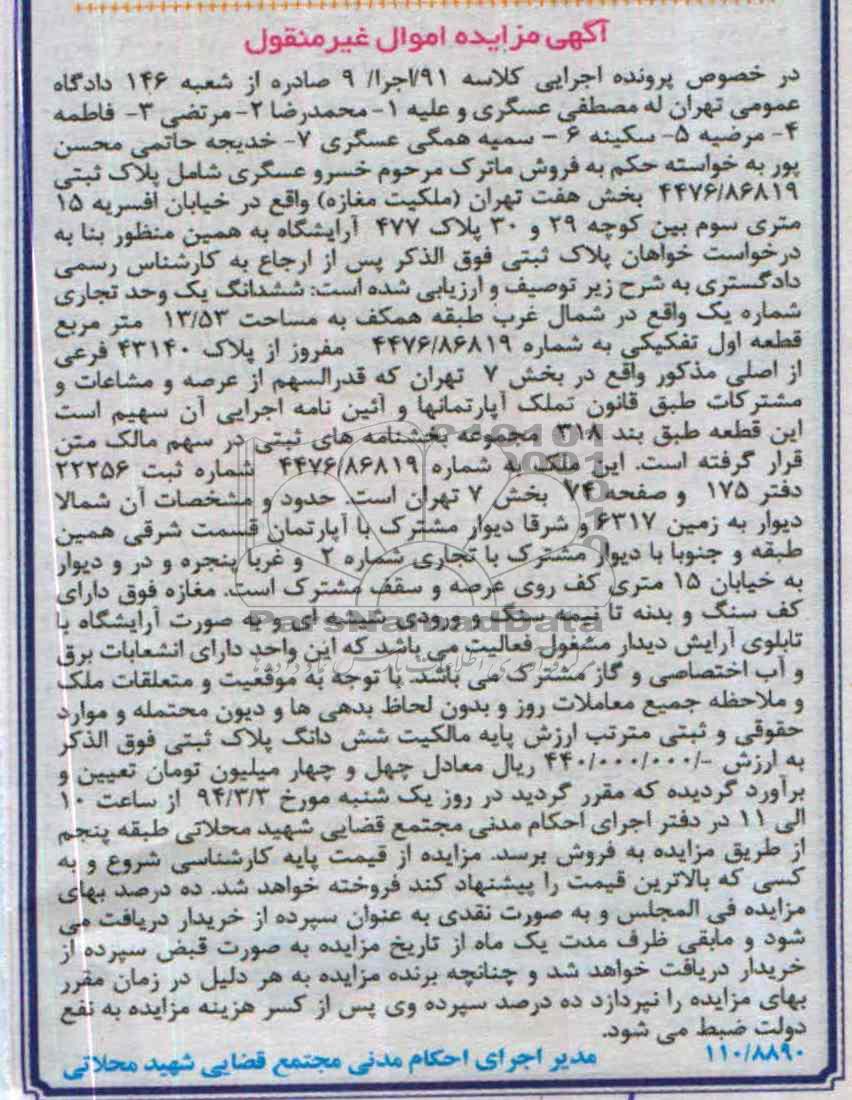 آگهی مزایده اموال غیرمنقول
در خصوص پرونده اجرایی کلاسه ۹۱/اجرا/ ۹ صادره از شعبه ۱۴۶ دادگاه
عمومی تهران له مصطفی عسگری و علیه ۱- محمدرضا ۲- مرتضی ۳- فاطمه
۴- مرضیه ۵- سکینه ۶ – سمیه همگی عسگری ۷- خدیجه حاتمی محسن
پور به خواسته حکم به فروش ماترک مرحوم خسرو عسگری شامل پلاک ثبتی
۴۴۷۶/۸۶۸۱۹ بخش هفت تهران (ملکیت مغازه) واقع در خیابان افسریه ۱۵
متری سوم بین کوچه ۲۹ و ۳۰ پلاک ۴۷۷ آرایشگاه به همین منظور بنا به
درخواست خواهان پلاک ثبتی فوق الذکر پس از ارجاع به کارشناس رسمی
دادگستری به شرح زیر توصیف و ارزیابی شده است: ششدانگ یک وحد تجاری
شماره یک واقع در شمال غرب طبقه همکف به مساحت ۱۳/۵۳ متر مربع
قطعه اول تفکیکی به شماره ۴۴۷۶/۸۶۸۱۹ مفروز از پلاک ۴۳۱۴۰ فرعی
از اصلی مذکور واقع در بخش ۷ تهران که قدرالسهم از عرصه و مشاعات و
مشترکات طبق قانون تملک آپارتمانها و آئین نامه اجرایی آن سهیم است
این قطعه طبق بند ۳۱۸ مجموعه بخشنامه های ثبتی در سهم مالک متن
قرار گرفته است. این ملک به شماره ۴۴۷۶/۸۶۸۱۹ شماره ثبت ۲۲۲۵۶
دفتر ۱۷۵ و صفحه ۷۴ بخش ۷ تهران است. حدود و مشخصات آن شمالا
دیوار به زمین ۶۳۱۷ و شرقا دیوار مشترک با آپارتمان قسمت شرقی همین
طبقه و جنوبا با دیوار مشترک با تجاری شماره ۲ و غربا پنجره و در و دیوار
به خیابان ۱۵ متری کف روی عرصه و سقف مشترک است. مغازه فوق دارای
کف سنگ و بدنه تا نیمه سنگ و ورودی شیشه ای و به صورت آرایشگاه با
تابلوی آرایش دیدار مشغول فعالیت می باشد که این واحد دارای انشعابات برق
و آب اختصاصی و گاز مشترک می باشد. با توجه به موقعیت و متعلقات ملک
و ملاحظه جمیع معاملات روز و بدون لحاظ بدهی ها و دیون محتمله و موارد
حقوقی و ثبتی مترتب ارزش پایه مالکیت شش دانگ پلاک ثبتی فوق الذکر
به ارزش -/۴۴۰/۰۰۰/۰۰۰ ریال معادل چهل و چهار میلیون تومان تعیین و
برآورد گردیده که مقرر گردید در روز یک شنبه مورخ ۹۴/۳/۳ از ساعت ۱۰
الی ۱۱ در دفتر اجرای احکام مدنی مجتمع قضایی شهید محلاتی طبقه پنجم
از طریق مزایده به فروش برسد. مزایده از قیمت پایه کارشناسی شروع و به
کسی که بالاترین قیمت را پیشنهاد کند فروخته خواهد شد. ده درصد بهای
مزایده فی المجلس و به صورت نقدی به عنوان سپرده از خریدار دریافت می
شود و مابقی ظرف مدت یک ماه از تاریخ مزایده به صورت قبض سپرده از
خریدار دریافت خواهد شد و چنانچه برنده مزایده به هر دلیل در زمان مقرر
بهای مزایده را نپردازد ده درصد سپرده وی پس از کسر هزینه مزایده به نفع
دولت ضبط می شود.
۱۱۰/۸۸۹۰ مدیر اجرای احکام مدنی مجتمع قضایی شهید محلاتی
ParsNamadData